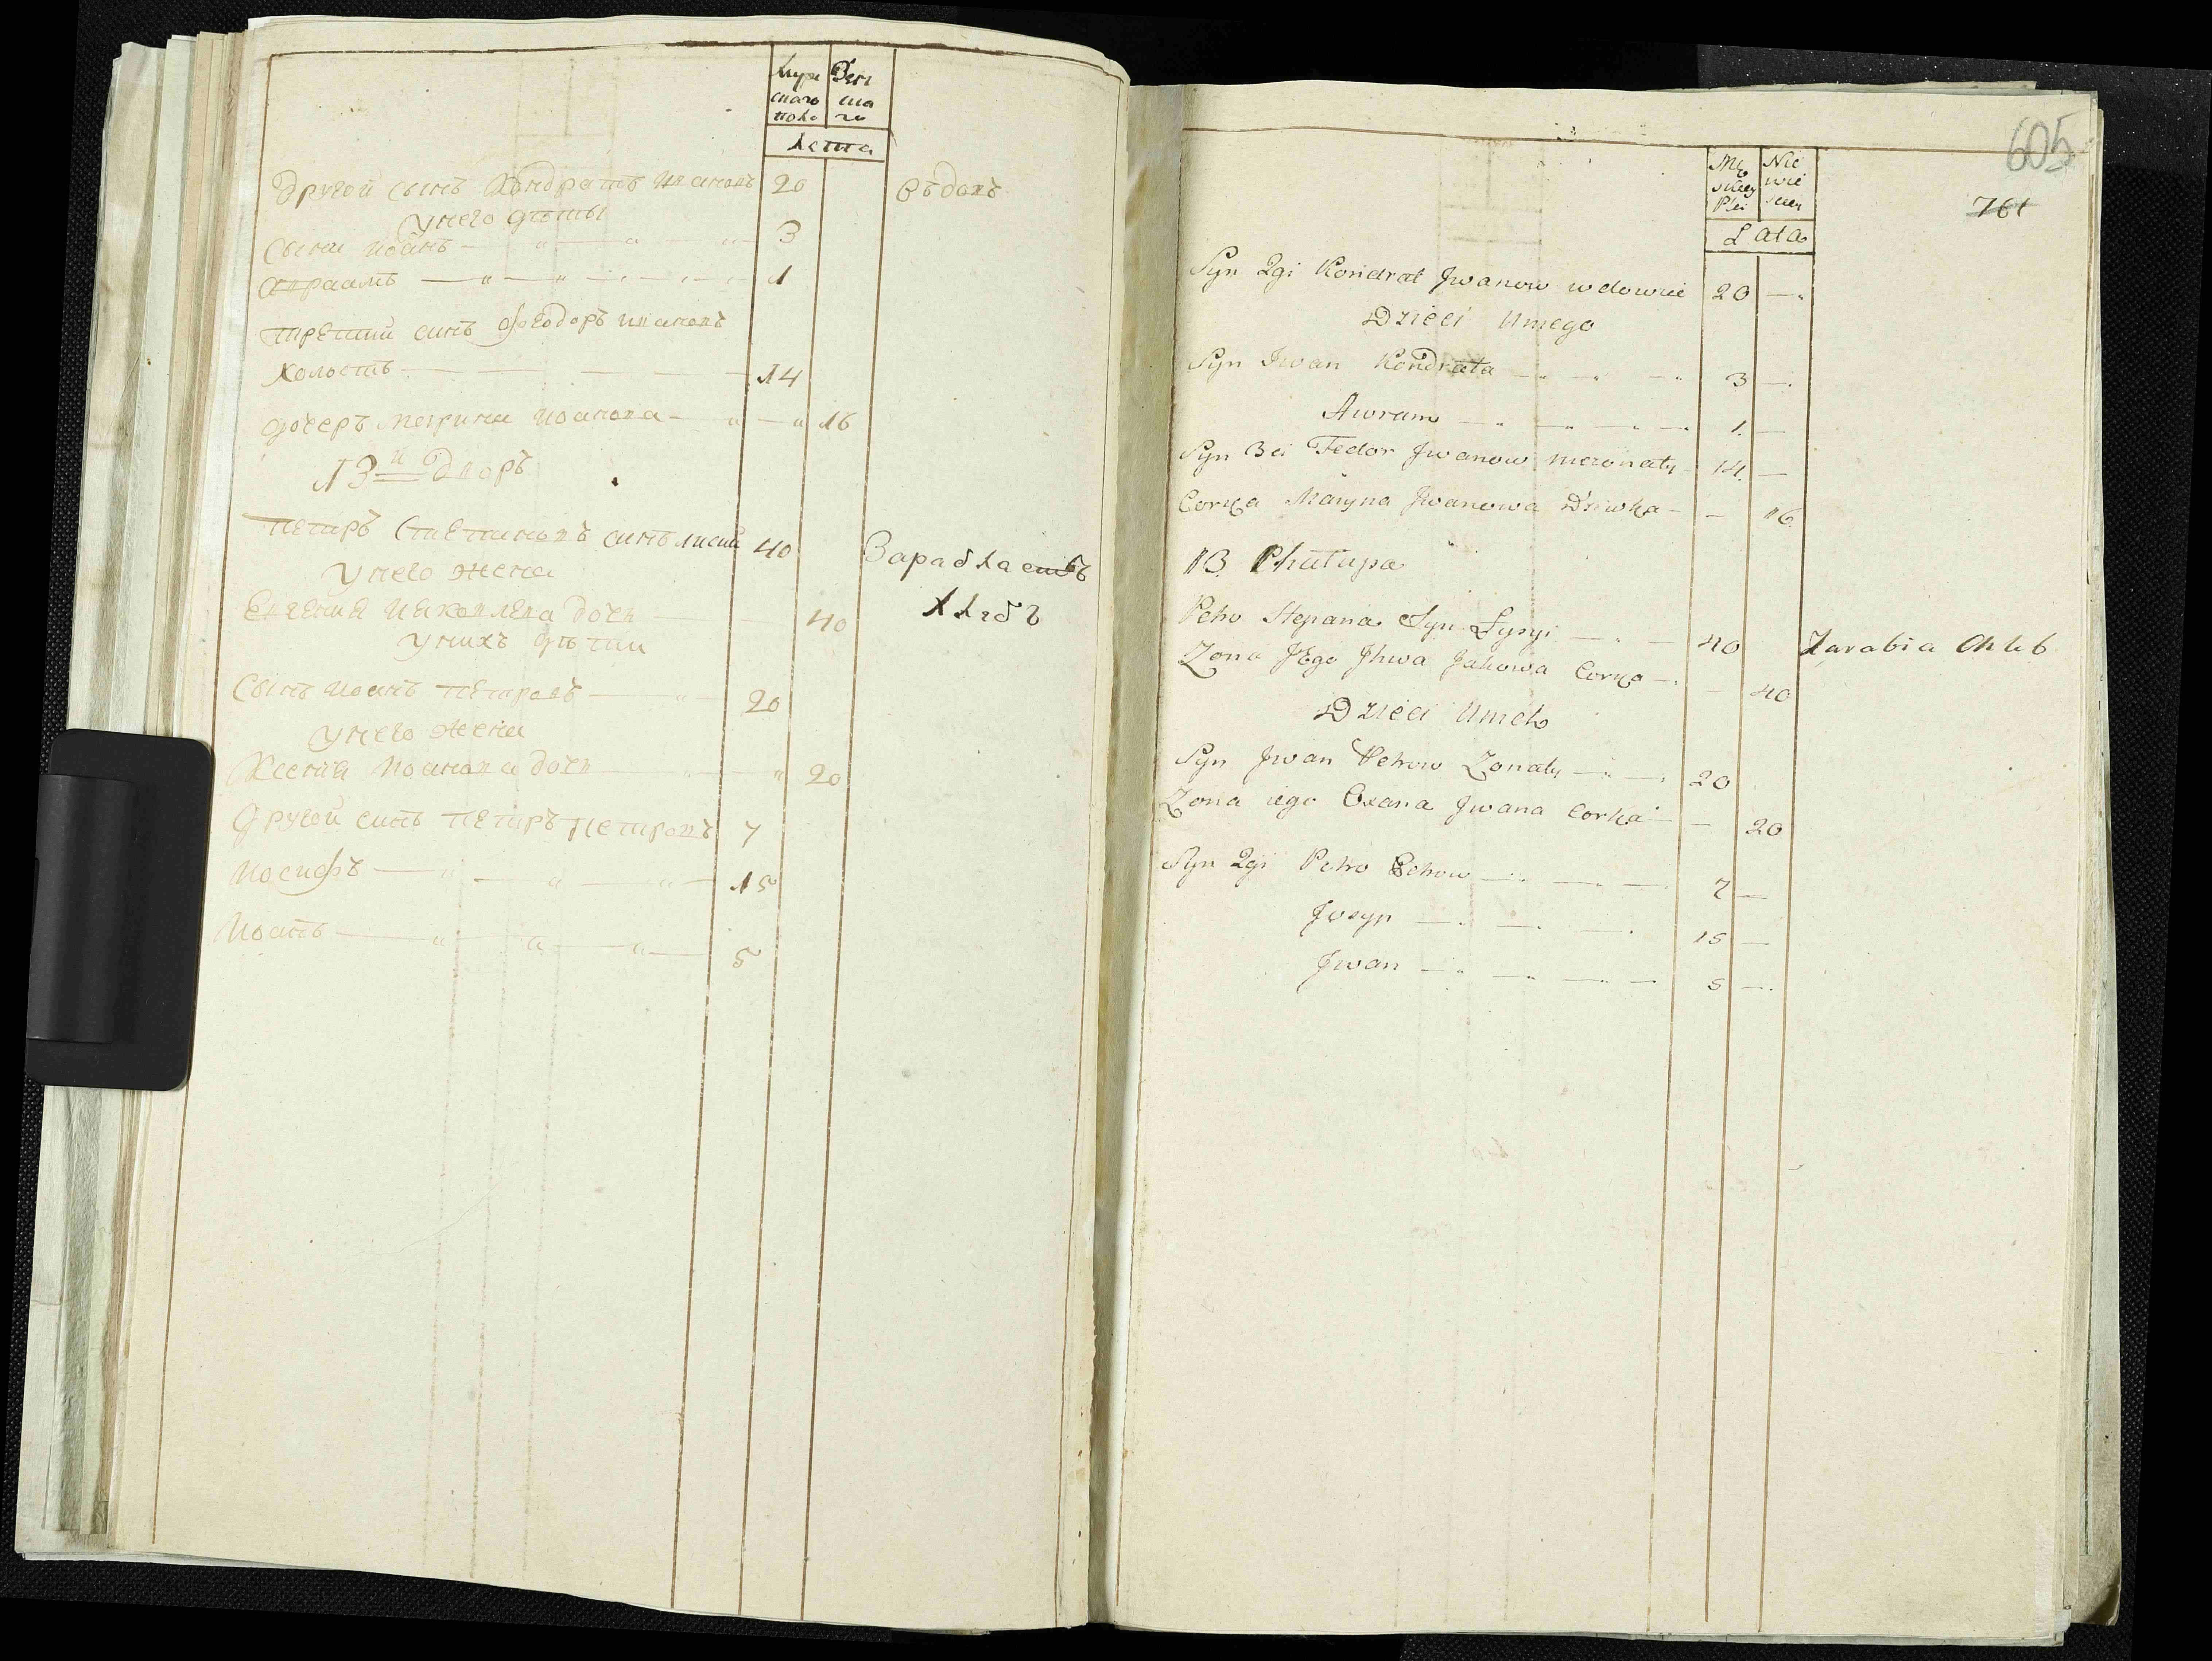 Муже
скаго
пола
Жен
ска
го
Лета
Другой сынъ Кондратъ Ивановъ 20 вдовъ
у него дѣты
Сыни Иоанъ 3
Авраамъ 1
Третий синъ Феодоръ Ивановъ
холостъ 14
Дочеръ Марина Иоанова 16
13й Дворъ
Петръ Степановъ синъ Лисий 40 Зарабляетъ
у него жена хлѣбъ
Евгения Иаковлева дочь 40
у нихъ дѣтии
Сынъ Иоанъ Петровъ 20
у него жена
Ксения Иоанова дочь 20
Другой синъ Петръ Петровъ 7
Иосифъ 15
Иоанъ 5
605
761
Mę
skiey
Płci
Nie
wie
sciey
Lata
Syn 2gi Kondrat Jwanow wdowiec 20
Dzieci Unego
Syn Iwan Kondrata 3
Awram 1.
Syn 3ci Fedor Jwanow niezonaty 14.
Corka Maryna Jwanowa Dziwka 16
13. Chałupa
Petro Stepana Syn Łysyi 40 Zarabia Chleb
Zona Jego Jhwa Jakowa Corka 40
Dzieci Unich
Syn Jwan Petrow Zonaty 20
Zona iego Oxana Jwana Corka 20
Syn 2gi Petro Petrow 7
Josyp 15
Jwan 5